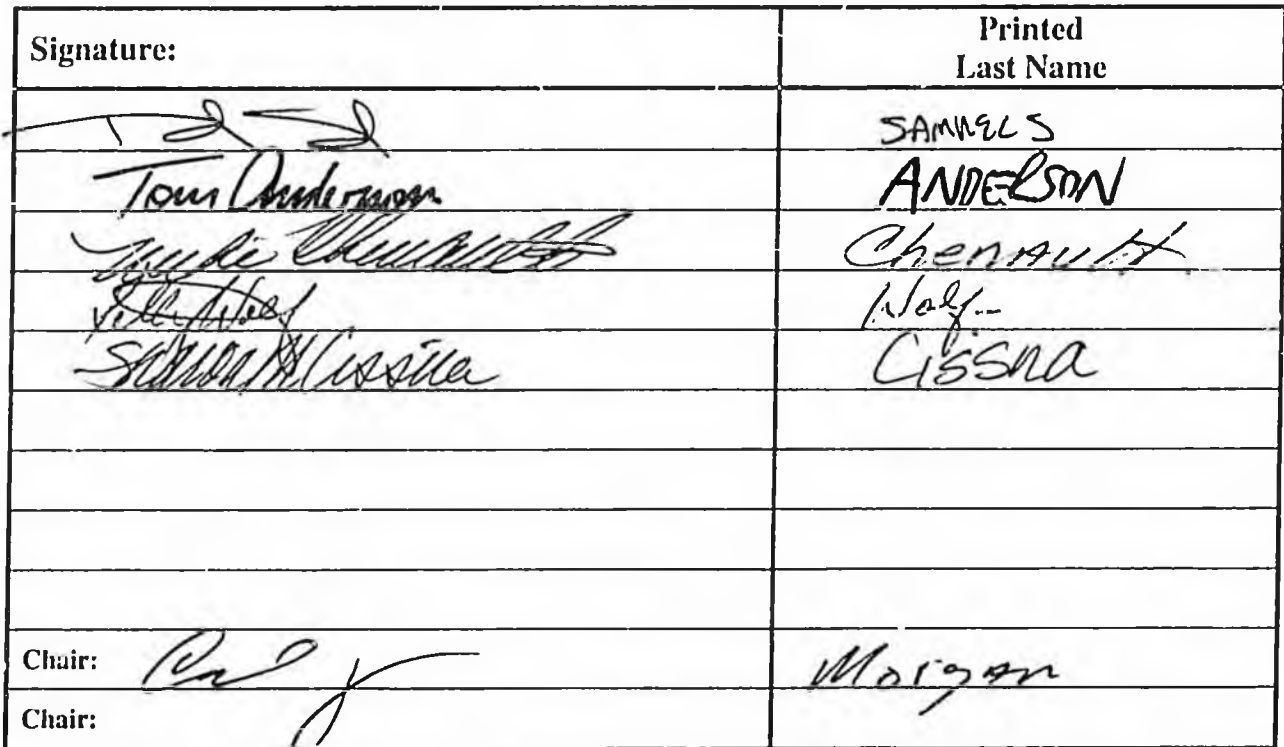 Signature: Printed
Last Name
SAMUELS
Tom Anderson ANDERSON
Chenault Chenault
Wolf Wolf
Sharon Cissna Cissna
Chair: Morgan
Chair: